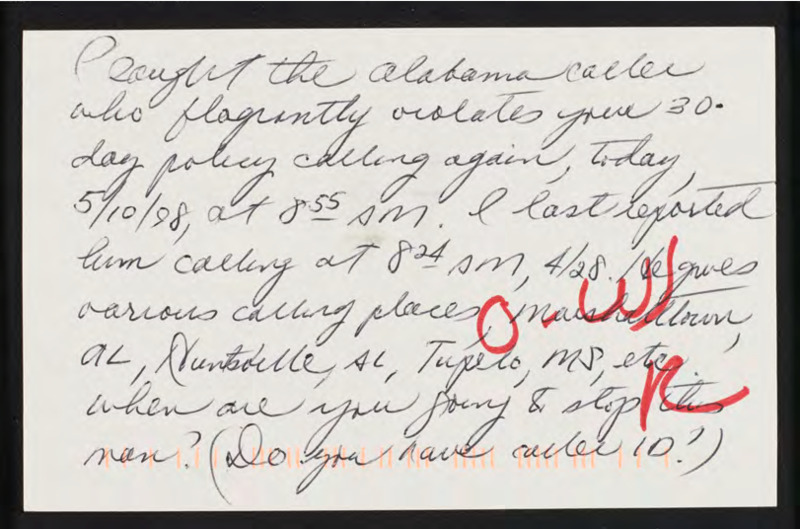 I caught the Alabama caller
who flagrantly violates your 30-
day policy calling again, today,
5/10/98, at 8 55 AM. I last reported
him calling at 8 24 AM, 4/28. He gives
various calling places, Marshalltown,
AL, Huntsville, AL, Tupelo, MS, etc.
When are you going to stop this
man? (Do you have caller ID?)